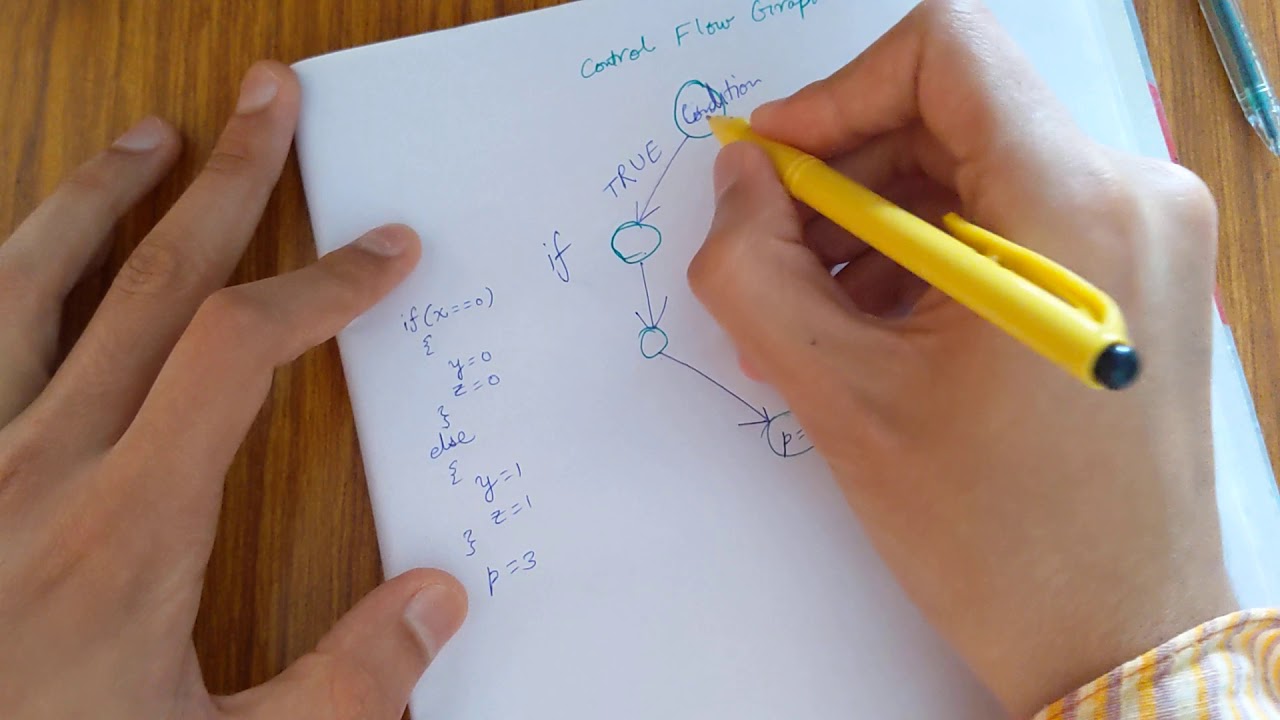 Control Flow Grap
Condition
TRUE
if
if(x==0)
{
y=0
z=0
}
else
{
y=1
z=1
}
p=3
p=